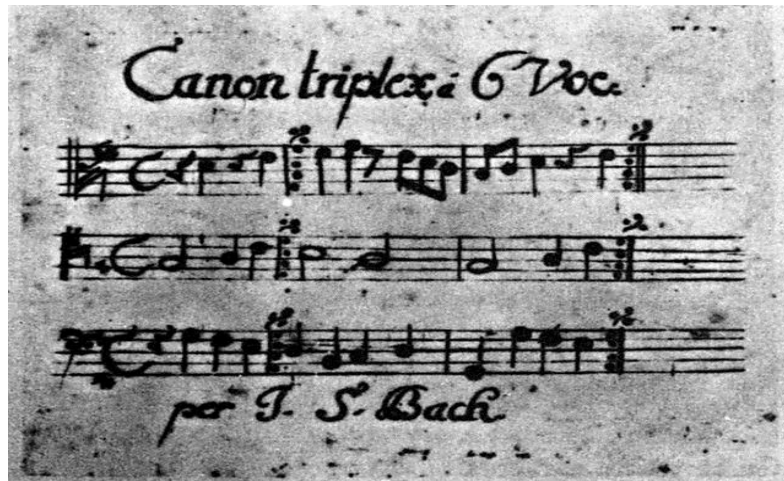 Canon triplex á 6 Voc:
per J. S. Bach.